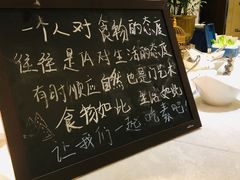 一个人对食物的态度
往往是TA对生活的态度
有时顺应自然也是门艺术
食物如此 生活如此
让我们一起 吃素吧!